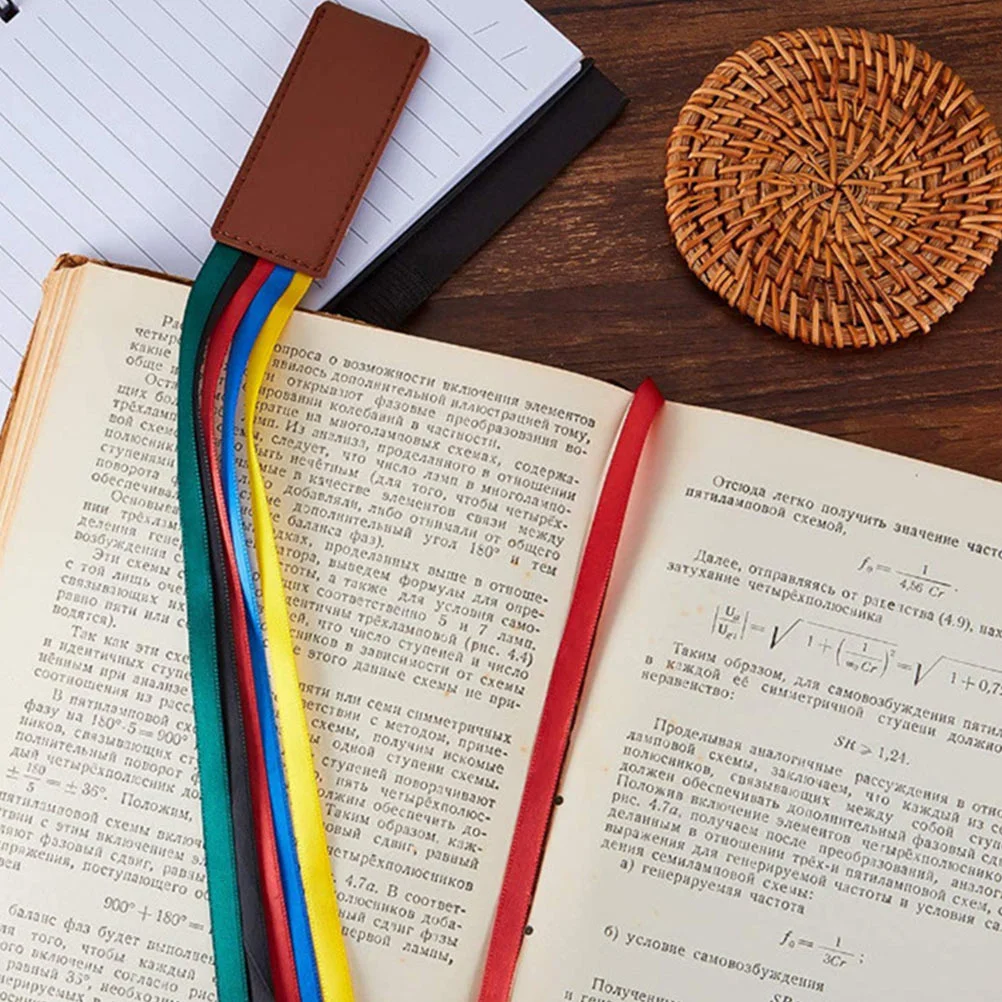 опроса о возможности включения элементов
явилось дополнительной иллюстрацией тому,
какие открывают фазовые преобразования во-
обще и ировании колебаний в частности.
Оста на многоламповых схемах, содержа-
щих бол амп. Из анализа, проделанного в отношении
трёхламп ы, следует, что число ламп в многолампо-
вой схем быть нечётным (для того, чтобы четырёх-
полюсник мые в качестве элементов связи между
ступенями добавляли, либо отнимали от общего
поворота дополнительный угол 180° и тем
обеспечив баланса фаз).
Основыва дках, проделанных выше в отноше-
нии трёхлам атора, выведем формулы для опре-
деления ген тоты, а также для условия само-
возбуждения с их соответственно 5 и 7 ламп.
Эти схемы с дентичны трёхламповой (рис. 4.4)
с той лишь ей, что число ступеней и число
связывающих их сников в зависимости от схемы
равно пяти или с этого данные схемы не при-
водятся).
Так как эти схе пяти или семи симметричных
и идентичных ступен ветствии с методом, приме-
нённым при анализе схемы, получим искомые
соотношения из расс ы одной ступени схемы.
В пятиламповой сх ступеней поворачивают
фазу на 180°·5=900° пять четырёхполюс-
ников, связывающих ст обеспечить до-
полнительный поворот ф Таким образом, каж-
дый четырёхполюсник до овый сдвиг, равный
± 180/5 = ± 36°. Положим, четырёхполюсников
пятиламповой схемы включе 4.7а. В соответ-
твии с этим включением полюсников доба-
ляют фазовый сдвиг, равн сдвиг фазы
пряжения, поступающего с первой лампы,
вен
900° + 180° =
баланс фаз будет выполне
ля того, чтобы каждый
ого включены согласно рис
равный 35°, необходимо
Отсюда легко получить значение част
пятиламповой схемой,
f₀ = 1/4,86 Cr.
Далее, отправляясь от равенства (4.9), на
затухание четырёхполюсника
|Uа/Ug'| = √1 + (1/ω₀Cr)² = √1 + 0,7
Таким образом, для самовозбуждения пяти
в каждой её симметричной ступени должно
неравенство:
SR ⩾ 1,24.
Проделывая аналогичные рассуждения в отн
ламповой схемы, заключаем, что каждый из с
полюсников, связывающих между собой ступ
должен обеспечивать дополнительный фазовый сд
Положив включение элементов четырёхполюсник
рис. 4.7а, получаем после преобразований, аналог
деланным в отношении трёх-и пятиламповой схем,
выражения для генерируемой частоты и условия са
дения семиламповой схемы:
а) генерируемая частота
f₀ = 1/3Cr;
б) условие самовозбуждения
SR
Полученны
и гене